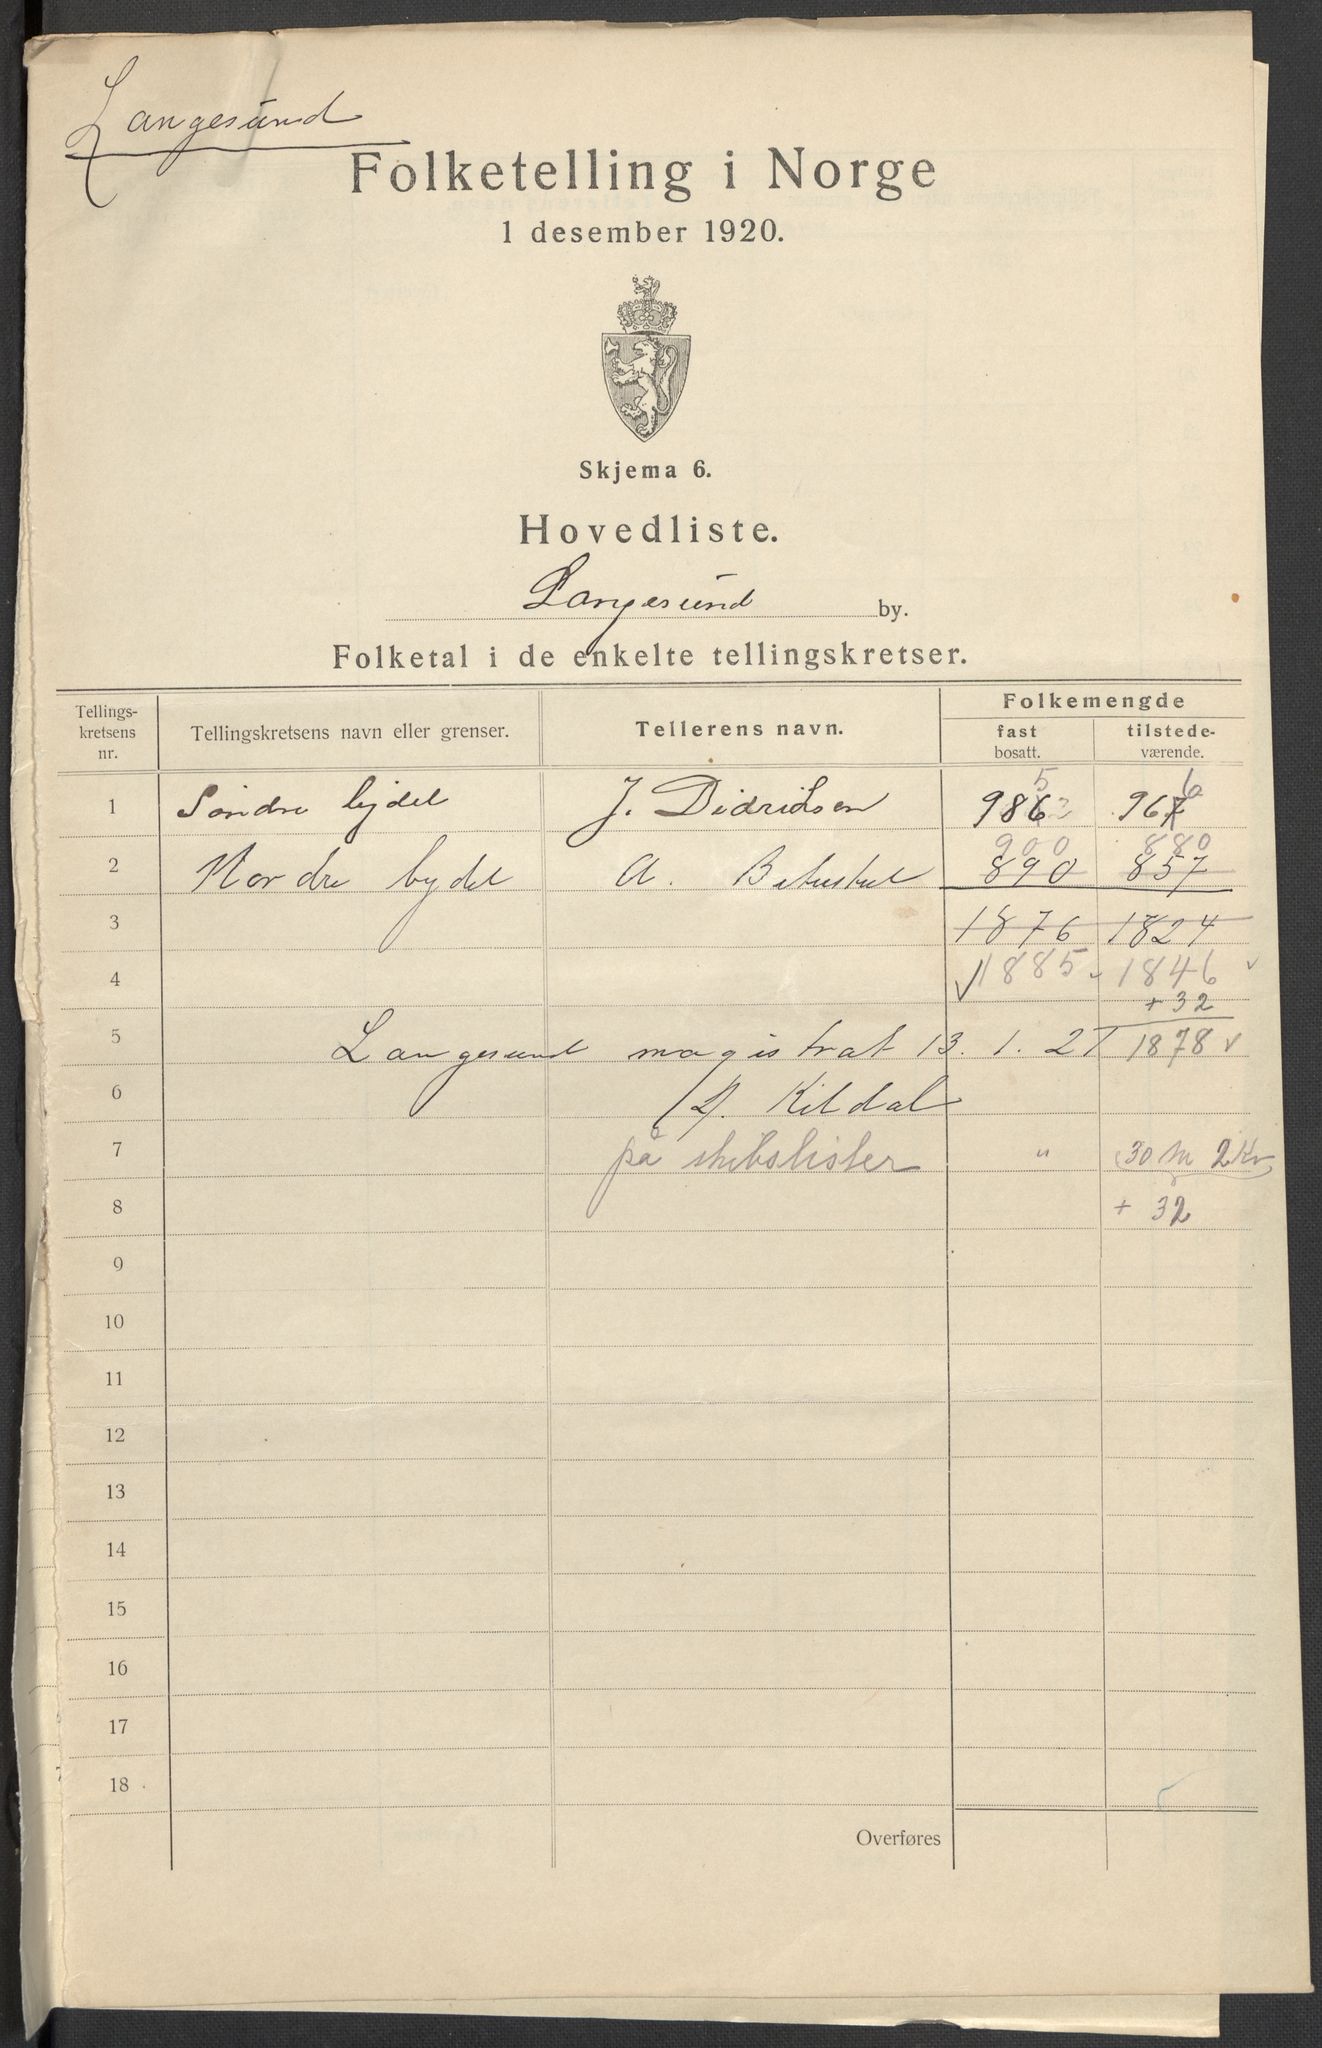 Langesund
Folketelling i Norge
1 desember 1920.
Skjema 6.
Hovedliste.
Langesund by.
Folketal i de enkelte tellingskretser.
Tellings-
kretsens
nr.
Tellingskretsens navn eller grenser.
Tellerens navn.
Folkemengde
fast
bosatt.
tilstede-
værende.
5 6
1 Söndre bydel J. Didriksen 986 967
900 880
2 Nordre bydel A. 890 857
3 1876 1824
4 1885 1846
+ 32
5 Langesund magistrat 13. 1. 21 1878
6 Kildal
7 på skibslister " 30 M 2 Kv
8 + 32
9
10
11
12
13
14
15
16
17
18
Overføres